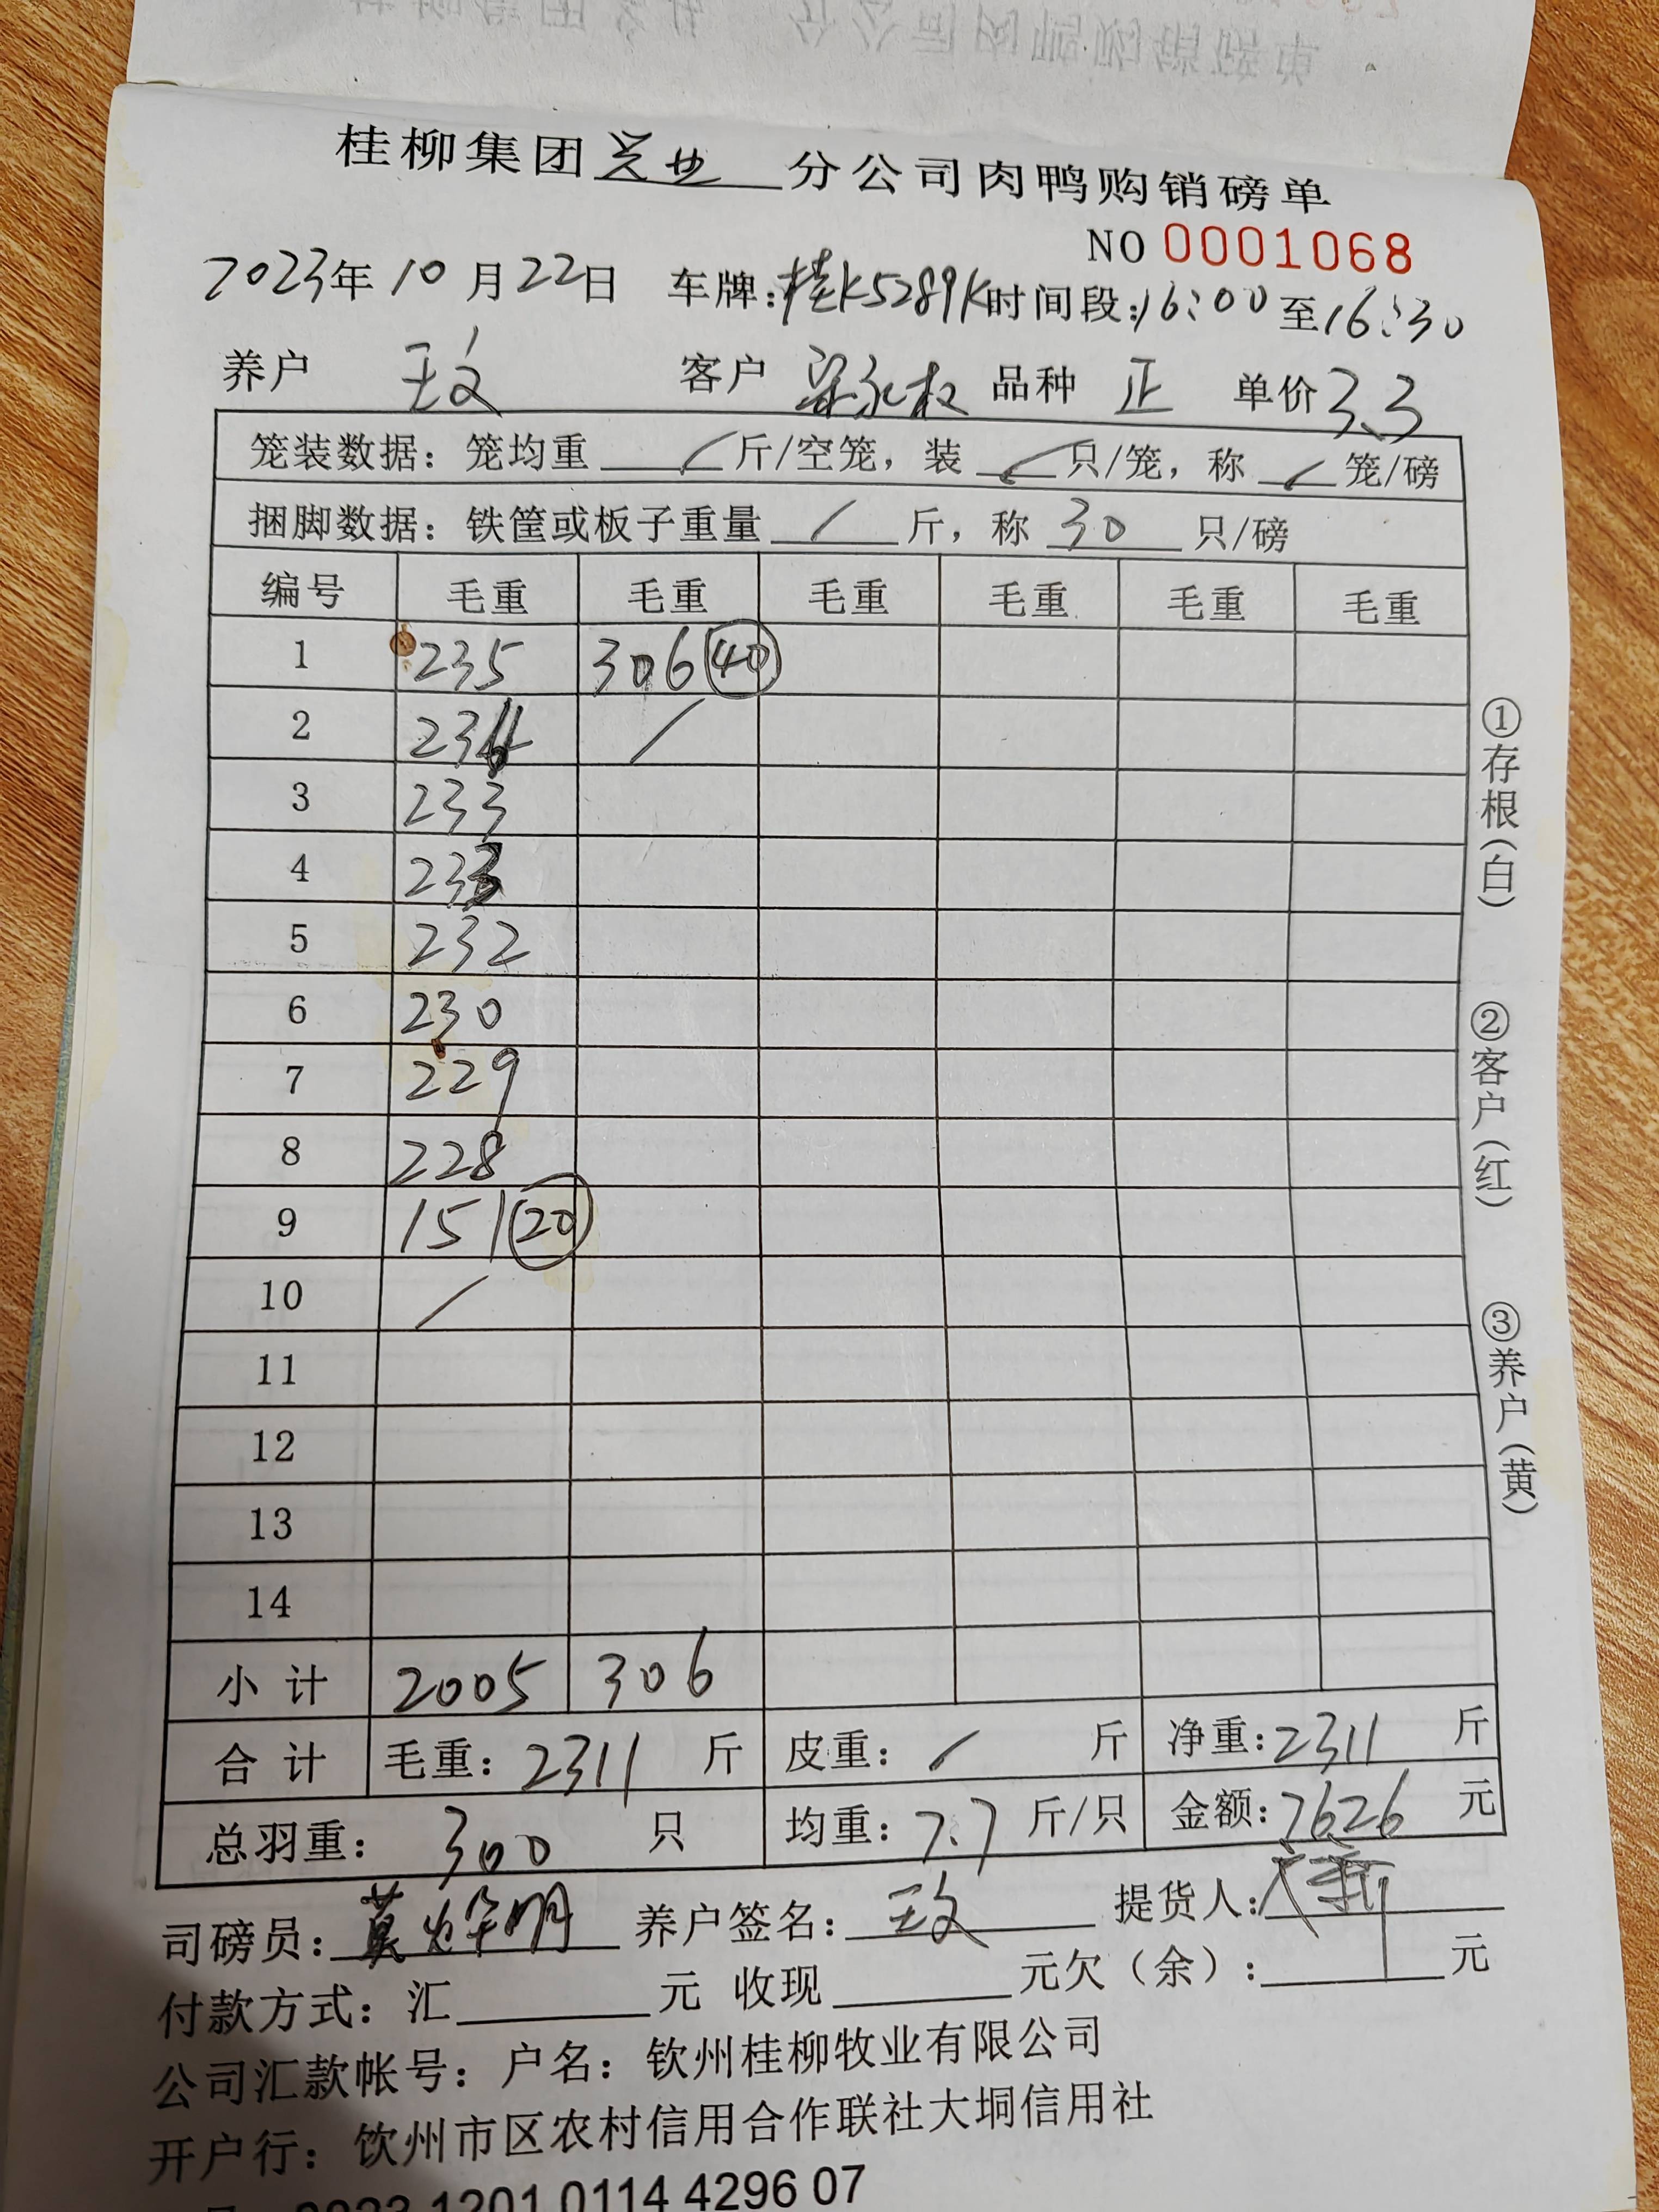 桂柳集团兴业分公司肉鸭购销磅单
NO 0001068
2023年10月22日 车牌:桂K5289K时间段:16:00至16:30
养户 王文 客户 梁永权 品种 正 单价3.3
笼装数据：笼均重 / 斤/空笼，装 / 只/笼，称 / 笼/磅
捆脚数据：铁筐或板子重量 / 斤，称 30 只/磅
编号 毛重 毛重 毛重 毛重 毛重 毛重
1 235 306 40
2 /
3 233
4 23
5 232
6 230
7 229
8 228
9 151 20
10 /
11
12
13
14
小计 2005 306
合计 毛重：2311 斤 皮重：/ 斤 净重:2311 斤
总羽重：300 只 均重：7.7 斤/只 金额:7626 元
司磅员：莫烨明 养户签名：王文 提货人:
付款方式：汇 元 收现 元欠（余）: 元
公司汇款帐号：户名：钦州桂柳牧业有限公司
开户行：钦州市区农村信用合作联社大垌信用社
1201 0114 4296 07
①存根(白)
②客户(红)
③养户(黄)